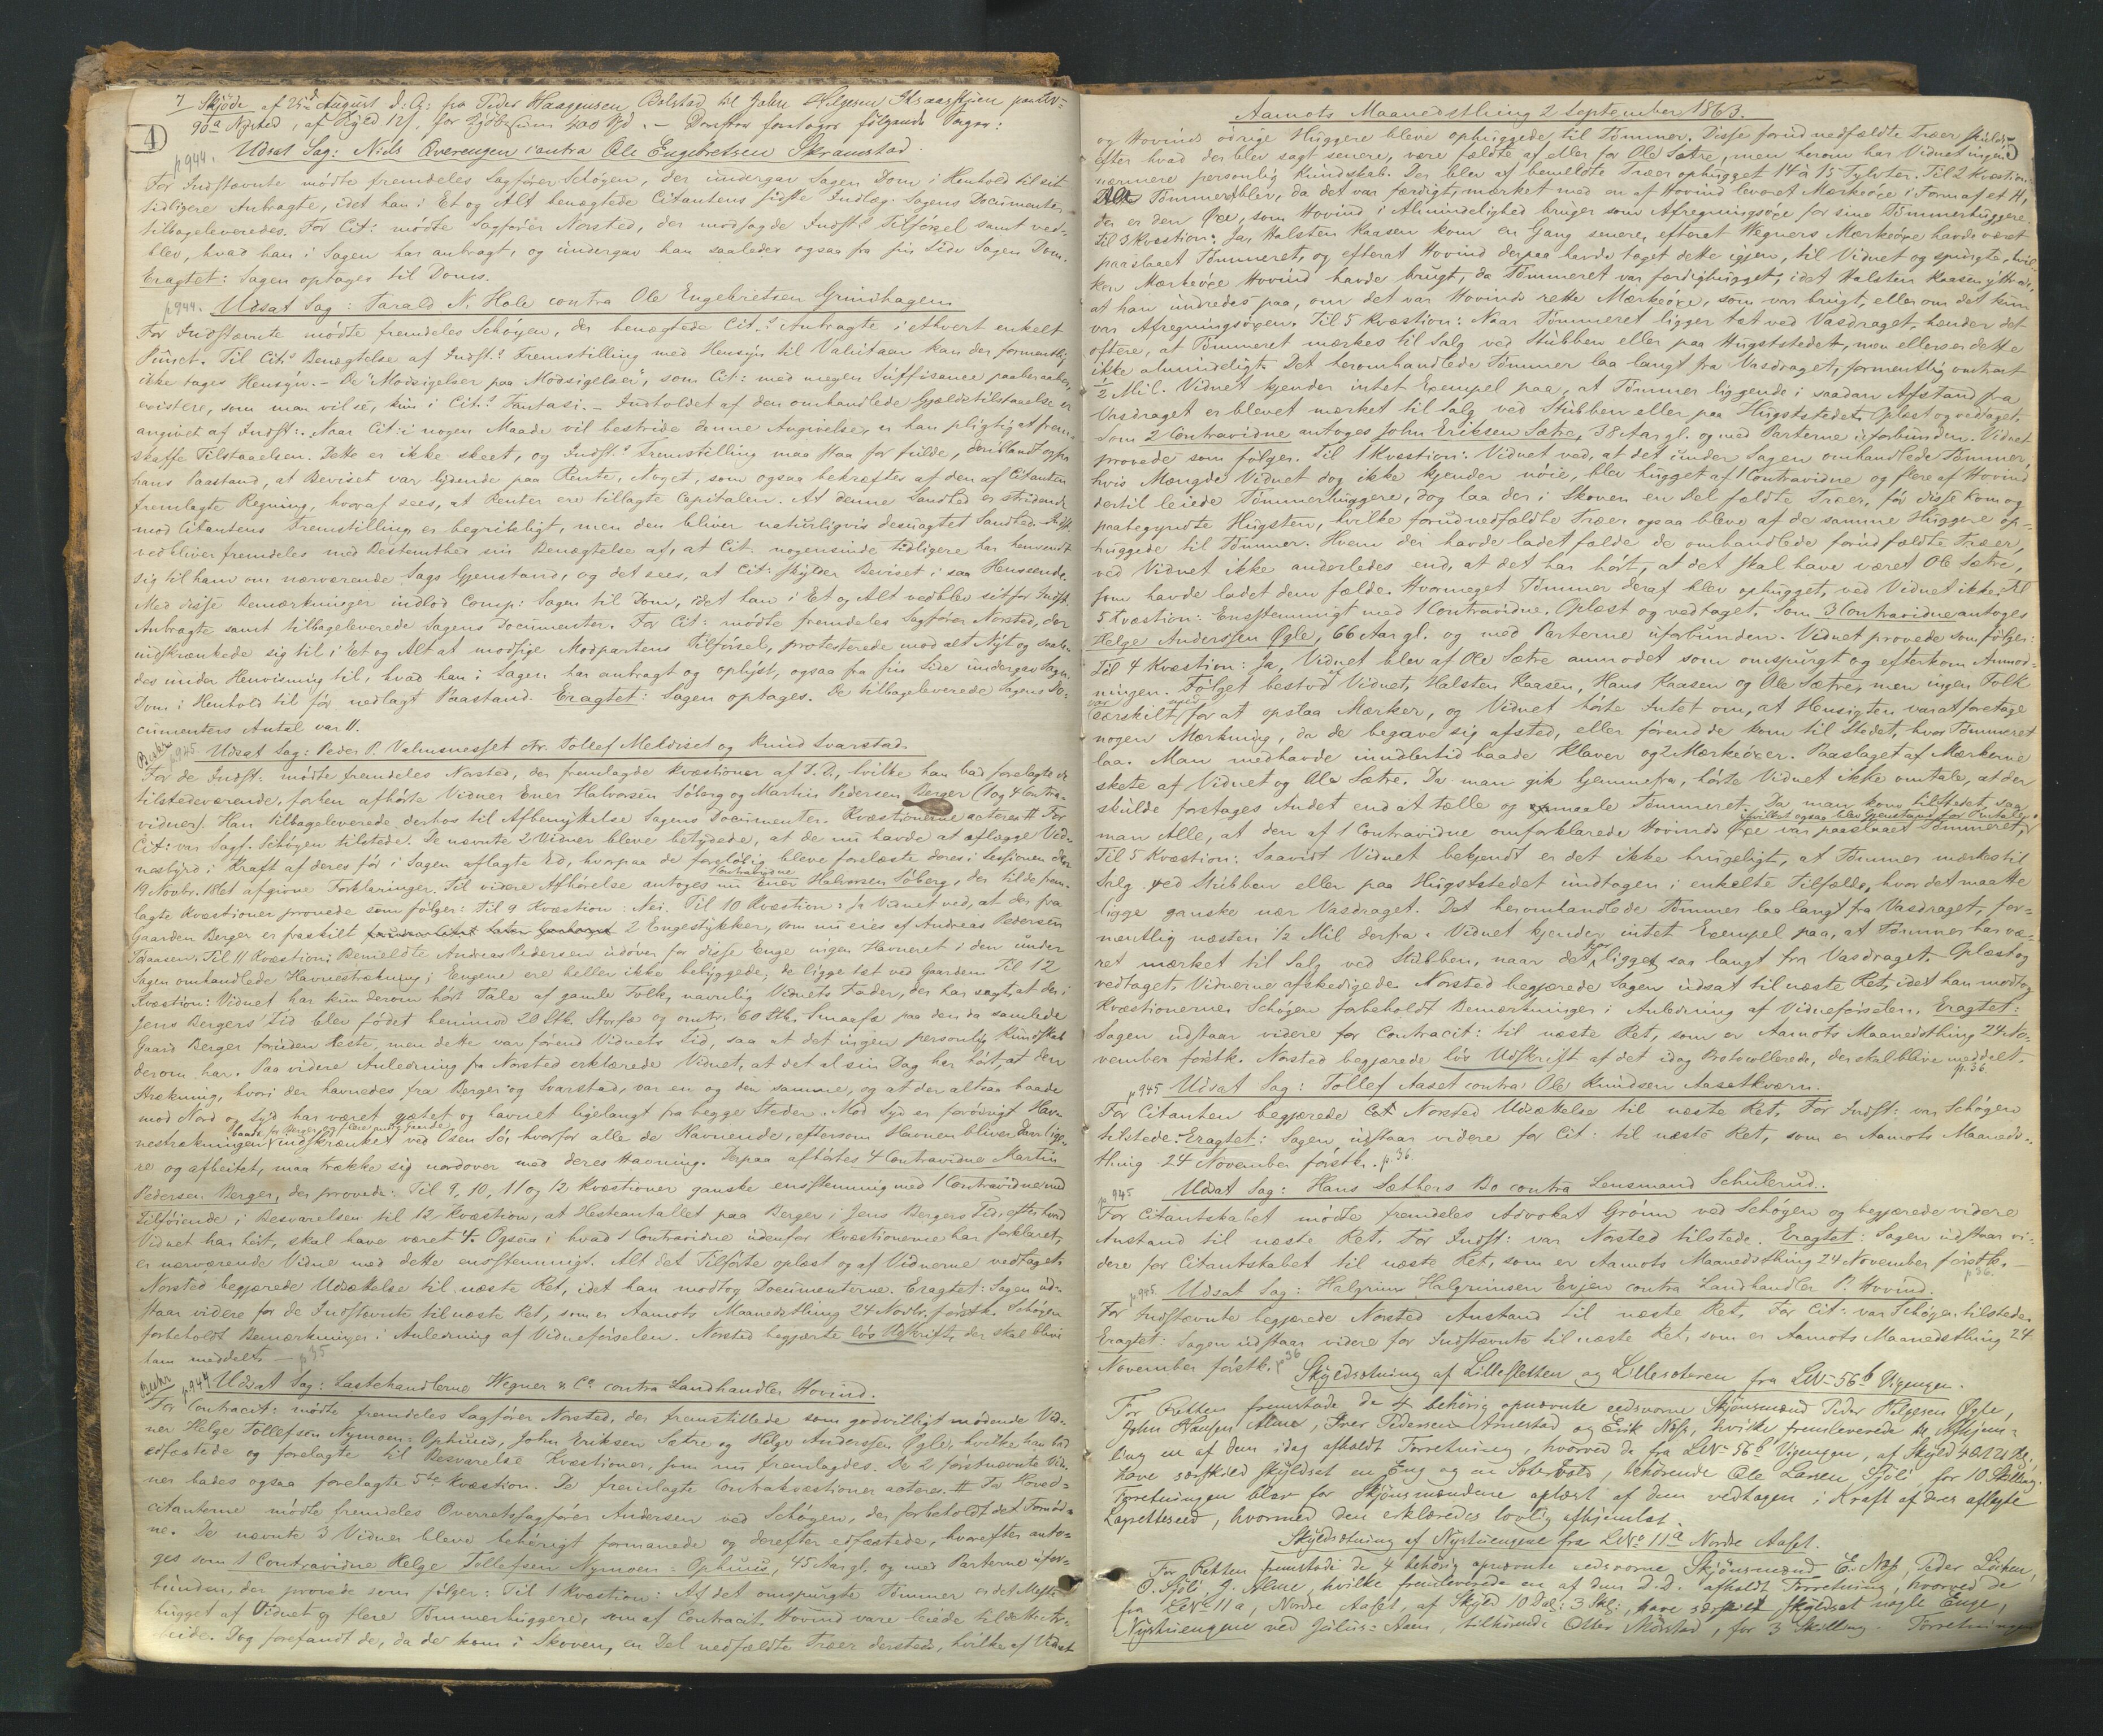 4
7 Skjöde af 25d August d: A: fra Peder Haagensen Bolstad til Johan Helgesen paa LN=
90a Nysted, af Skyld 12 ſ, for Kjöbesum 400 Spd. — Derefter foretoges følgende Sager:
p 944. Udsat Sag: Niels Qverengen contra Ole Engebretsen Skramstad.
For Indstævnte mødte fremdeles Sagfører Schøyen, der undergav Sagen Dom i Henhold til sit
tidligere Anbragte, idet han i Et og Alt benægtede Citantens sidste Indlæg. Sagens Documenter
tilbageleveredes. For Cit: mødte Sagfører Norsted, der modsagde Indst:s Tilførsel samt ved-
blev, hvad han i Sagen har anbragt, og undergav han saaledes ogsaa fra sin Side Sagen Dom.
Eragtet: Sagen optages til Doms.
p 944. Udsat Sag: Tarald N. Hole contra Ole Engebretsen Grindhagen
For Indstævnte mødte fremdeles Schøyen, der benægtede Cit:s Anbragte i ethvert enkelt
Punct. Til Cit:s Benægtelse af Indst:s Fremstilling med Hensyn til Valutaen kan der formentlig
ikke tages Hensyn. — De "Modsigelser paa Modsigelser", som Cit: med megen Süffisance paaberaaber,
existere, som man vil se, kun i Cit:s Fantasi. — Indholdet af den omhandlede Gjældstilstaaelse er
angivet af Indst:. Naar Cit: i nogen Maade vil bestride denne Angivelse, er han pligtig at frem-
skaffe Tilstaaelsen. Dette er ikke skeet, og Indst:s Fremstilling maa staa for fulde, deriblandt ogsaa
hans Paastand, at Beviset var lydende paa Rente, Noget, som ogsaa bekræftes af den af Citanten
fremlagte Regning, hvoraf sees, at Renter ere tillagte Capitalen. At denne Sandhed er stridende
mod Citantens Fremstilling er begribeligt, men den bliver naturligvis desuagtet Sandhed. Indst:
vedbliver fremdeles med Bestemthed sin Benægtelse af, at Cit: nogensinde tidligere har henvendt
sig til ham om nærværende Sags Gjenstand, og det sees, at Cit: skylder Beviset i saa Henseende.
Med disse Bemærkninger indlod Comp: Sagen til Dom, idet han i Et og Alt vedblev sit for Indst:
Anbragte samt tilbageleverede Sagens Documenter. For Cit: mødte fremdeles Sagfører Norsted, der
indskrænkede sig til i Et og Alt at modsige Modpartens Tilførsel, protesterede mod alt Nyt og saale-
des under Henvisning til, hvad han i Sagen har anbragt og oplyst, ogsaa fra sin Side undergav Sagen
Dom i Henhold til før nedlagt Paastand. Eragtet: Sagen optages. De tilbageleverede Sagens Do-
cumenters Antal var 11.
Beskr. p 945. Udsat Sag: Peder P. Valmsnesset ctr. Tollef Meldiset og Knud Svarstad.
For de Indst: mødte fremdeles Norsted, der fremlagde Kvæstioner af D. D., hvilke han bad forelagte de
tilstedeværende, forhen afhørte Vidner Ener Halvorsen Søberg og Martin Pedersen Berger (1 og 4 Contra-
vidner). Han tilbageleverede derhos til Afbenyttelse Sagens Documenter. Kvæstionerne acteres # For
Cit: var Sagf. Schøyen tilstede. De nævnte 2 Vidner bleve betydede, at de nu havde at aflægge Vid-
nesbyrd i Kraft af deres før i Sagen aflagte Ed, hvorpaa de foreløbig bleve forelæste deres i Sessionen den
19 Novbr. 1861 afgivne Forklaringer. Til videre Afhørelse antoges nu 1 Contravidne Ener Halvorsen Søberg, der til de frem-
lagte Kvæstioner provede som følger: Til 9 Kvæstion: Nei. Til 10 Kvæstion: Ja Vidnet ved, at der fra
Gaarden Berger er fraskilt 2 Engestykker, som nu eies af Andreas Pedersen
Kaasen. Til 11 Kvæstion: Bemeldte Andreas Pedersen udøver for disse Enge ingen Havneret i den under
Sagen omhandlede Havnestrækning; Engene ere heller ikke bebyggede; de ligge tæt ved Gaarden. Til 12
Kvæstion: Vidnet har kun derom hørt Tale af gamle Folk, navnlig Vidnets Fader, der har sagt, at der i
Jens Bergers Tid blev födet henimod 20 Stk. Storfæ og omtr. 60 Stk. Smaafæ paa den da samlede
Gaard Berger foruden Heste, men dette var førend Vidnets Tid, saa at det ingen personlig Kundskab
derom har. Paa videre Anledning fra Norsted erklærede Vidnet, at det al sin Dag har hørt, at den
Strækning, hvori der havnedes fra Berger og Svarstad, var en og den samme, og at der altsaa baade
mod Nord og Syd har været gjætet og havnet ligelangt fra begge Steder. Mod Syd er forøvrigt Hav-
nestrækningen baade for Berger og flere andre Gaarde indskrænket ved Osen Sø, hvorfor alle de Havnende, eftersom Havnen bliver daarlige-
re og afbeitet, maa trække sig nordover med deres Havning. Derpaa afhørtes 4 Contravidne Martin
Pedersen Berger, der provede: Til 9, 10, 11 og 12 Kvæstioner ganske enstemmig med 1 Contravidne, med
Tilføiende i Besvarelsen til 12 Kvæstion, at Hesteantallet paa Berger i Jens Bergers Tid, efter hvad
Vidnet har hørt, skal have været 4. Ogsaa i hvad 1 Contravidne udenfor Kvæstionerne har forklaret,
er nærværende Vidne med dette enstemmigt. Alt det Tilførte oplæst og af Vidnerne vedtaget.
Norsted begjærede Udsættelse til næste Ret, idet han modtog Documenterne. Eragtet: Sagen ud-
staar videre for de Indstævnte til næste Ret, som er Aamots Maanedsthing 24 Novbr. førstk. Schøyen
forbeholdt Bemærkninger i Anledning af Vidneførselen. Norsted begjærte løs Udskrift, der skal blive
ham meddelt. — p 35
Beskr. p 944 Udsat Sag: Lastehandlerne Wegner & Co contra Landhandler Hovind.
For Contracit: mødte fremdeles Sagfører Norsted, der fremstillede som godvilligt mødende Vid-
ner Helge Tollefsen Nymoen = Ophuus, John Eriksen Sætre og Helge Anderssen Øgle, hvilke han bad
edfæstede og forelagte til Besvarelse Kvæstioner, som nu fremlagdes. De 2 førstnævnte Vid-
ner bades ogsaa forelagte 5te Kvæstion. De fremlagte Contrakvæstioner acteres # For Hoved-
citanterne mødte fremdeles Overretssagfører Andersen ved Schøyen, der forbeholdt det Fornød-
ne. De nævnte 3 Vidner bleve behørigt formanede og derefter edfæstede, hvorefter anto-
ges som 1 Contravidne Helge Tollefsen Nymoen = Ophuus, 45 Aar gl. og med Parterne ufor-
bunden, der provede som følger: Til 1 Kvæstion: At det omspurgte Tømmer er det Meste
hugget af Vidnet og flere Tømmerhuggere, som af Contracit. Hovind vare leiede til dette Ar-
beide. Dog forefandt de, da de kom i Skoven, en Del nedfældte Træer dersteds, hvilke af Vidnet
Aamots Maanedsthing 2 September 1863.
5
og Hovinds øvrige Huggere bleve ophuggede til Tømmer. Disse forud nedfældte Træer skulde,
efter hvad der blev sagt senere, være fældte af eller for Ole Sætre, men herom har Vidnet ingen
nærmere personlig Kundskab. Der blev af bemeldte Træer ophugget 14 à 15 Tylvter. Til 2 Kvæstion:
Alt Tømmeret blev, da det var færdigt, mærket med en af Hovind leveret Mærkeøxe i Form af et H,
der er den Øxe, som Hovind i Almindelighed bruger som Afregningsøxe for sine Tømmerhuggere.
Til 3 Kvæstion: Ja, Halsten Kaasen kom en Gang senere, efterat Wegners Mærkeøxe havde været
paaslaaet Tømmeret, og efterat Hovind derpaa havde taget dette igjen, til Vidnet og spurgte, hvil-
ken Mærkeøxe Hovind havde brugt, da Tømmeret var færdighugget, idet Halsten Kaasen yttrede,
at han undredes paa, om det var Hovinds rette Mærkeøxe, som var brugt, eller om det kun
var Afregningsøxen. Til 5 Kvæstion: Naar Tømmeret ligger tæt ved Vasdraget, hænder det
oftere, at Tømmeret mærkes til Salg ved Stubben eller paa Hugststedet, men ellers er dette
ikke almindeligt. Det heromhandlede Tømmer laa langt fra Vasdraget, formentlig omtrent
½ Mil. Vidnet kjender intet Exempel paa, at Tømmer liggende i saadan Afstand fra
Vasdraget er blevet mærket til Salg ved Stubben eller paa Hugststedet. Oplæst og vedtaget.
Som 2 Contravidne antoges John Eriksen Sætre, 38 Aar gl. og med Parterne uforbunden. Vidnet
provede som følger: Til 1 Kvæstion: Vidnet ved, at det under Sagen omhandlede Tømmer,
hvis Mængde Vidnet dog ikke kjender nøie, blev hugget af 1 Contravidne og flere af Hovind
dertil leiede Tømmerhuggere, dog laa der i Skoven en Del fældte Træer, før disse kom og
paabegyndte Hugsten, hvilke forudnedfældte Træer ogsaa bleve af de samme Huggere op-
huggede til Tømmer. Hvem der havde ladet fælde de omhandlede forudfældte Træer,
ved Vidnet ikke anderledes end, at det har hørt, at det skal have været Ole Sætre,
som havde ladet dem fælde. Hvormeget Tømmer deraf blev ophugget, ved Vidnet ikke. Til
5 Kvæstion: Enstemmigt med 1 Contravidne. Oplæst og vedtaget. Som 3 Contravidne antoges
Helge Anderssen Øgle, 66 Aar gl. og med Parterne uforbunden. Vidnet provede som følger:
Til 4 Kvæstion: Ja, Vidnet blev af Ole Sætre anmodet som omspurgt og efterkom Anmod-
ningen. Følget bestod af Vidnet, Halsten Kaasen, Hans Kaasen og Ole Sætre, men ingen Folk
var særskilt med for at opslaa Mærker, og Vidnet hørte Intet om, at Hensigten var at foretage
nogen Mærkning, da de begave sig afsted, eller førend de kom til Stedet, hvor Tømmeret
laa. Man medhavde imidlertid baade Klaver og 2 Mærkeøxer. Paaslaget af Mærkerne
skete af Vidnet og Ole Sætre. Da man gik hjemmefra, hørte Vidnet ikke omtale, at der
skulde foretages Andet end at tælle og maale Tømmeret. Da man kom til Stedet, saa
man Alle, at den af 1 Contravidne omforklarede Hovinds Øxe var paaslaaet Tømmeret, hvilket ogsaa blev Gjenstand for Omtale.
Til 5 Kvæstion: Saavidt Vidnet bekjendt er det ikke brugeligt, at Tømmer mærkes til
Salg ved Stubben eller paa Hugststedet undtagen i enkelte Tilfælde, hvor det maatte
ligge ganske nær Vasdraget. Det heromhandlede Tømmer laa langt fra Vasdraget, for-
mentlig næsten ½ Mil derfra. Vidnet kjender intet Exempel paa, at Tømmer har væ-
ret mærket til Salg ved Stubben, naar det har ligget saa langt fra Vasdraget. Oplæst og
vedtaget. Vidnerne afskedigede. Norsted begjærede Sagen udsat til næste Ret, idet han modtog
Kvæstionerne. Schøyen forbeholdt Bemærkninger i Anledning af Vidneførselen. Eragtet:
Sagen udstaar videre for Contracit: til næste Ret, som er Aamots Maanedsthing 24 No-
vember førstk. Norsted begjærede løs Udskrift af det idag Protocollerede, der skal blive meddelt.
p. 36
p 945 Udsat Sag: Tollef Aaset contra Ole Knudsen Aasetkværn.
For Citanten begjærede Norsted Udsættelse til næste Ret. For Indst: var Schøyen
tilstede. Eragtet: Sagen udstaar videre for Cit: til næste Ret, som er Aamots Maaneds-
thing 24 November førstk. p. 36.
p 945 Udsat Sag: Hans Sæthers Bo contra Lensmand Schulerud.
For Citantskabet mødte fremdeles Advokat Grønn ved Schøyen og begjærede videre
Anstand til næste Ret. For Indst: var Norsted tilstede. Eragtet: Sagen udstaar vi-
dere for Citantskabet til næste Ret, som er Aamots Maanedsthing 24 November førstk. —
p 36.
p 945. Udsat Sag: Halgrim Halgrimsen Evjen contra Landhandler P. Hovind.
For Indstævnte begjærede Norsted Anstand til næste Ret. For Cit: var Schøyen tilstede.
Eragtet: Sagen udstaar videre for Indstævnte til næste Ret, som er Aamots Maanedsthing 24
November førstk. p 36
Skyldsetning af Lillesletten og Lillesæteren fra LN= 56b Vigengen.
For Retten fremstode de 4 behörig opnævnte eedsvorne Skjönsmænd Peder Helgesen Øgle,
John Hansen Alme, Iver Pedersen Arnestad og Erik Næss, hvilke fremleverede til Afhjem-
ling en af dem idag afholdt Forretning, hvorved de fra LN= 56b Vigengen, af Skyld
have særskild skyldsat en Eng og en Sæter, tilhörende Ole Larsen Sjöli for 10 Skilling.
Forretningen blev for Skjönsmændene oplæst af dem vedtagen i Kraft af deres aflagte
Laugretteseed, hvormed den erklæredes lovlig afhjemlet.
Skyldsætning af Nystuengene fra LNo 11a Nordre Aaset.
For Retten fremstode de 4 behörig opnævnte eedsvorne Skjönsmænd E. Næs, Peder Löken,
O. Sjöli, J. Alme, hvilke fremleverede en af dem D. D. afholdt Forretning, hvorved de
fra LNo 11a, Nordre Aaset, af Skyld 10 Dal: 3 Skl:, have særskilt skyldsat nogle Enge,
Nystuengene ved Julus-Aaen, tilhörende Otter Mörstad, for 3 Skilling. Forretningen